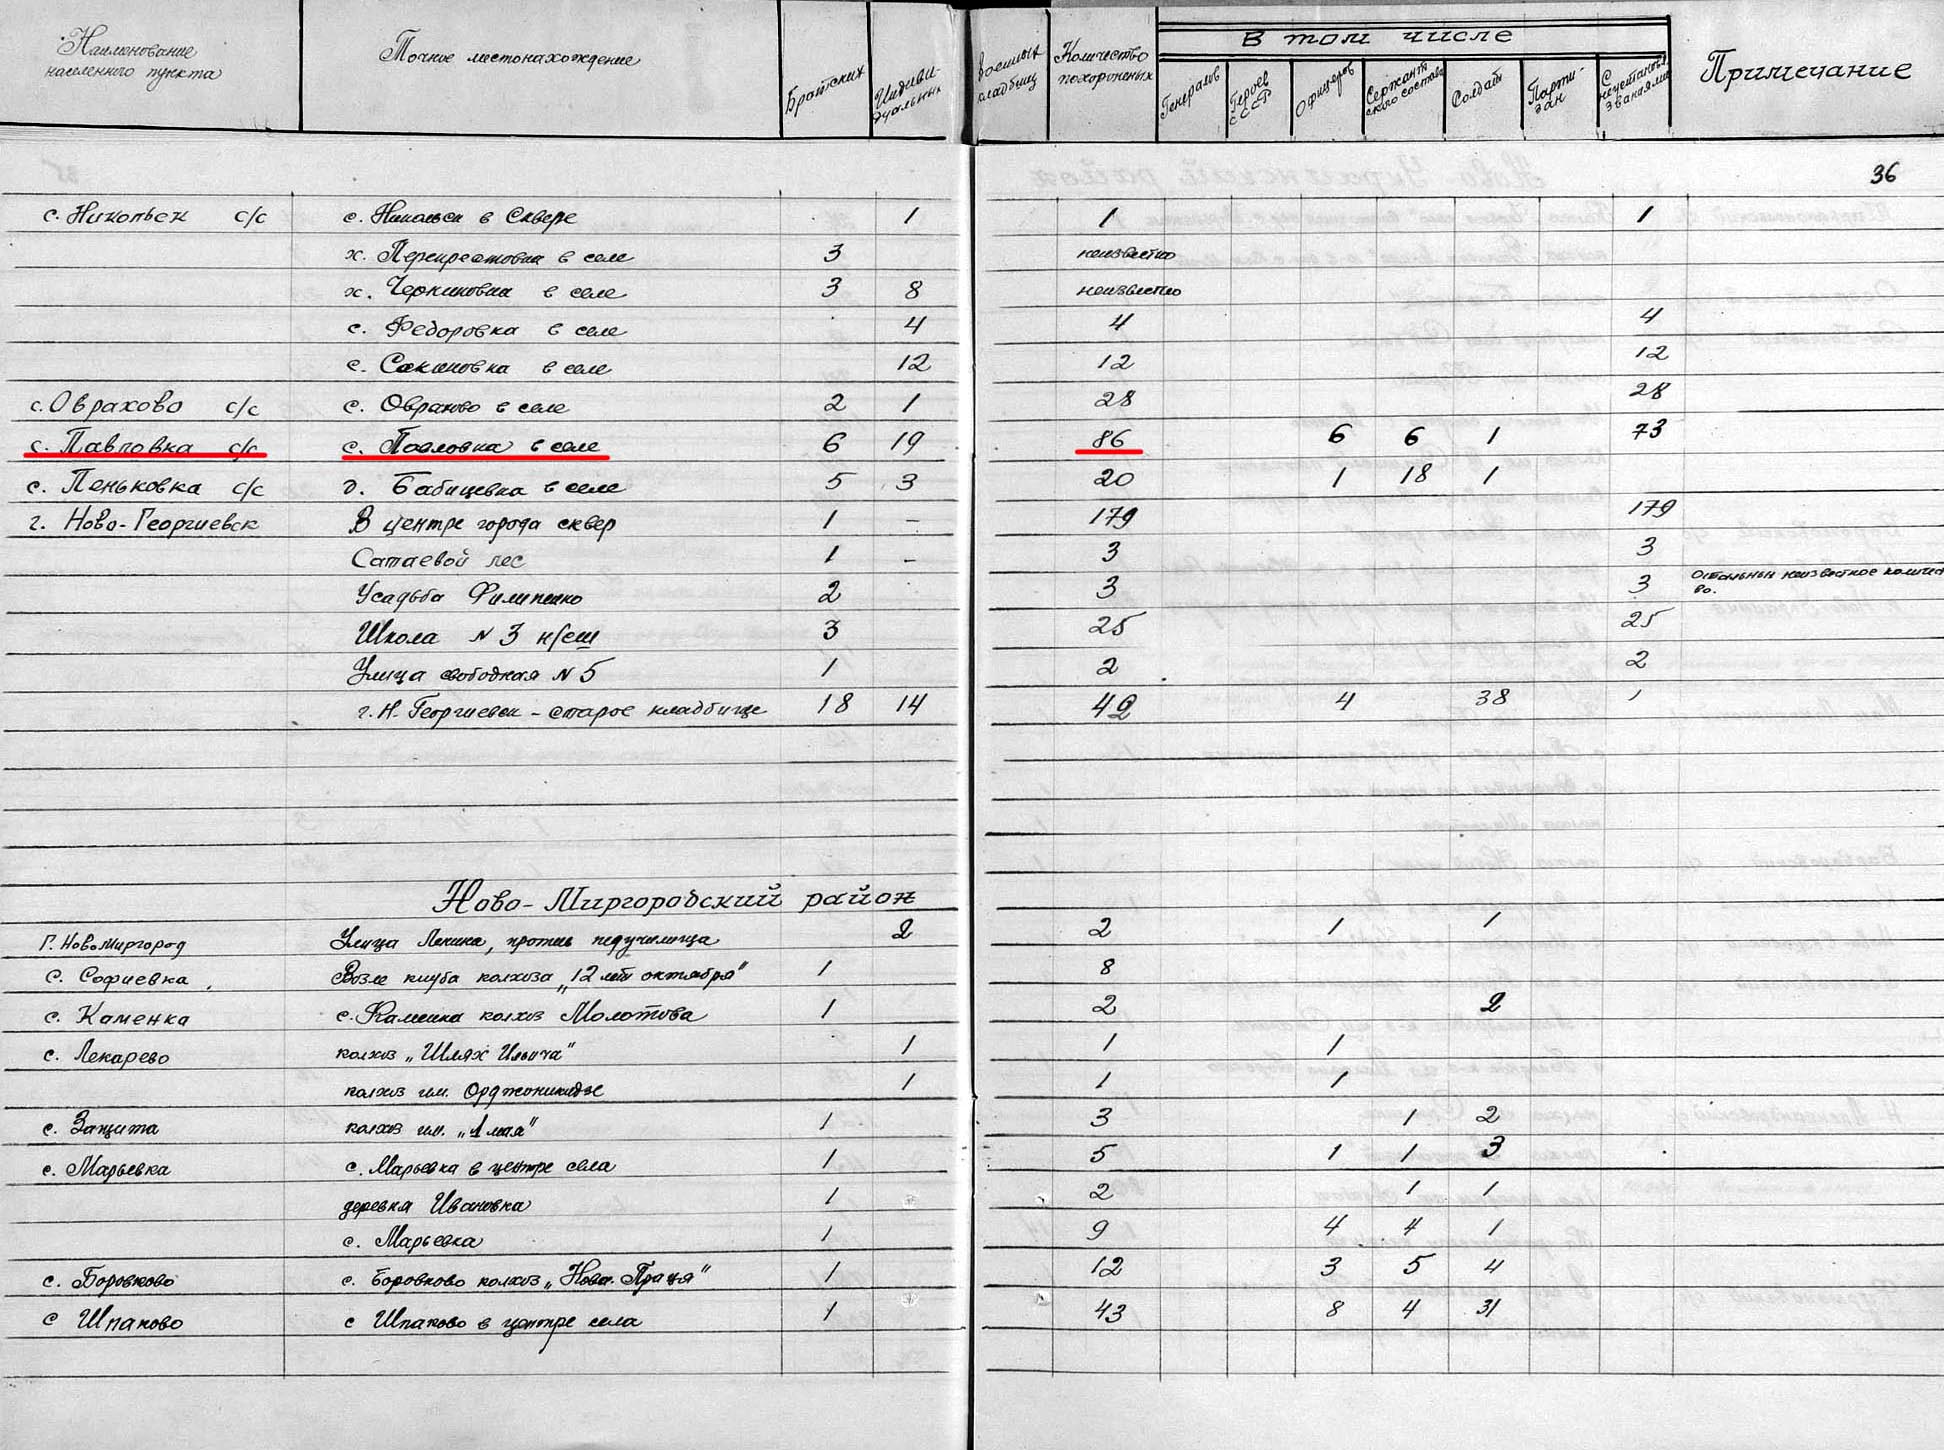 Наименование населенного пункта | Точное местонахождение | Братских | Индиви-дуальных | Военных кладбищ | Количество похороненых | В том числе | Примечание
Генералов | Героев СССР | Офицеров | Сержант ского состава | Солдаты | Парти-зан | С неустановл. званиями
36
с. Никольск с/с | с. Никольск в сквере | 1 | 1 | 1
х. Перекрестовка в селе | 3 | неизвестно
х. Черкиновка в селе | 3 | 8 | неизвестно
с. Федоровка в селе | 4 | 4 | 4
с. Сакиновка в селе | 12 | 12 | 12
с. Оврахово с/с | с. Оврахово в селе | 2 | 1 | 28 | 28
с. Павловка с/с | с. Павловка в селе | 6 | 19 | 86 | 6 | 6 | 1 | 73
с. Пеньковка с/с | д. Бабицевка в селе | 5 | 3 | 20 | 1 | 18 | 1
г. Ново-Георгиевск | В центре города сквер | 1 | – | 179 | 179
Сатаевой лес | 1 | – | 3 | 3
Усадьба Филипенко | 2 | 3 | 3 | Остальных неизвестное количество.
Школа N 3 н/сш | 3 | 25 | 25
Улица свободная N 5 | 1 | 2 | 2
г. Н. Георгиевск - старое кладбище | 18 | 14 | 42 | 4 | 38 | 1
Ново-Миргородский район
г. Новомиргород | Улица Ленина, против педучилища | 2 | 2 | 1 | 1
с. Софиевка | Возле клуба колхоза „12 лет октября" | 1 | 8
с. Каменка | с. Каменка колхоз Молотова | 1 | 2 | 2
с. Лекарево | колхоз „Шлях Ильича" | 1 | 1 | 1
колхоз им. Орджоникидзе | 1 | 1 | 1
с. Защита | колхоз им. „1 мая" | 1 | 3 | 1 | 2
с. Марьевка | с. Марьевка в центре села | 1 | 5 | 1 | 1 | 3
деревня Ивановка | 1 | 2 | 1 | 1
с. Марьевка | 1 | 9 | 4 | 4 | 1
с. Боровково | с. Боровково колхоз „Нова Праця" | 1 | 12 | 3 | 5 | 4
с Шпаково | с Шпаково в центре села | 1 | 43 | 8 | 4 | 31